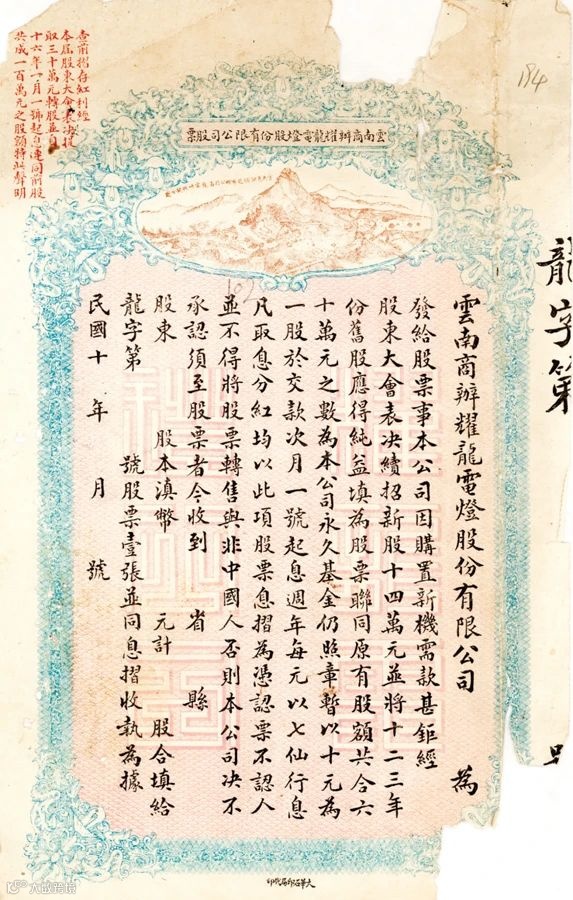 龍字第
雲南商辦耀龍電燈股份有限公司股票
雲南商辦耀龍電燈股份有限公司 為
發給股票事本公司因購置新機需款甚鉅經
股東大會表決續招新股十四萬元並將十二三年
份舊股應得純益填為股票聯同原有股額共合六
十萬元之數為本公司永久基金仍照章暫以十元為
一股於交款次月一號起息週年每元以七仙行息
凡取息分紅均以此項股票息摺為憑認票不認人
並不得將股票轉售與非中國人否則本公司决不
承認須至股票者今收到 省 縣
股東 股本滇幣 元計 股合填給
龍字第 號股票壹張並同息摺收執為據
民國十 年 月 號
存紅利經
本屆股東大會表决提
取三十萬元轉股並自
十六年一月一號起息連同前股
共成一百萬元之股額特此聲明
184
162
大華石印局代印